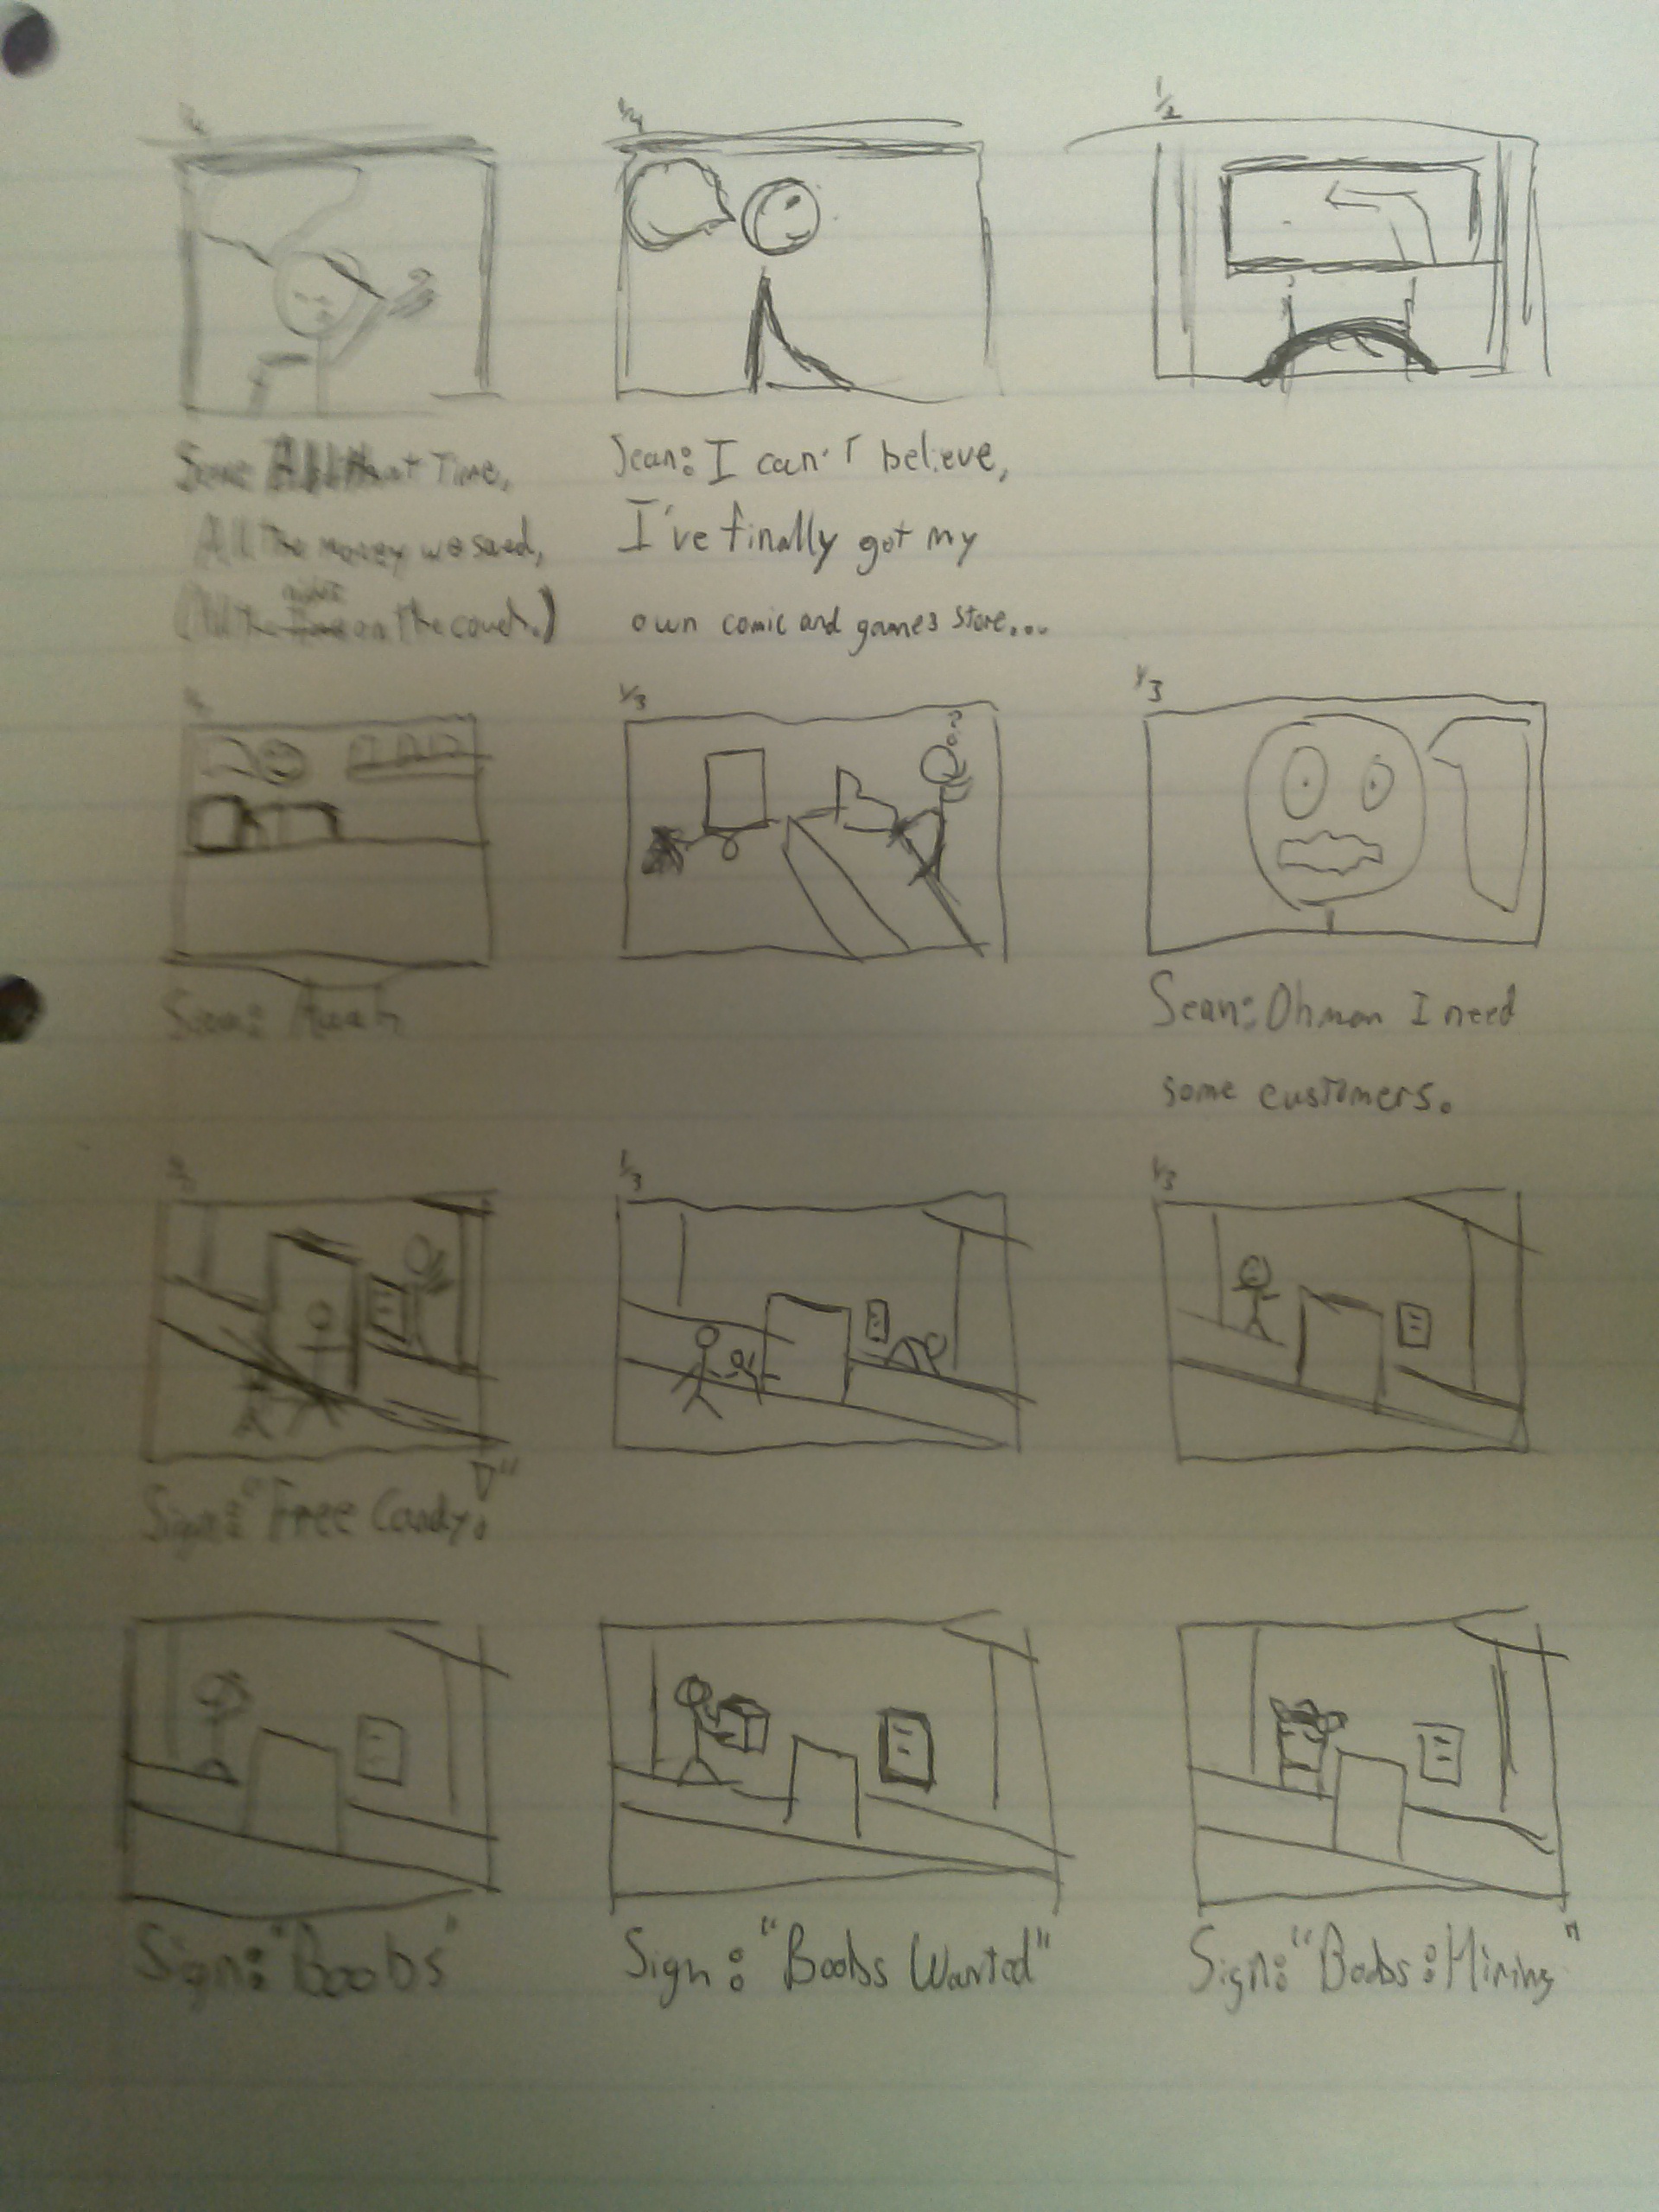 1/4
1/2
Sean: All that Time,
All The money we saved,
(All the nights on the couch.)
Sean: I can't believe,
I've finally got my
own comic and games store...
1/3
1/3
Sean:
Sean: Oh man I need
some customers.
1/3
1/3
Sign: "Free Candy!"
Sign: "Boobs"
Sign: "Boobs Wanted"
Sign: "Boobs: Hiring"